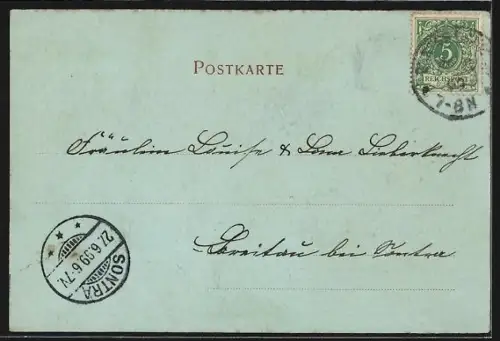 POSTKARTE
5
REICHSPOST
7-8N
Fräulein Louise & Lina Lieberknecht
Breitau bei Sontra
SONTRA
27.6.99.6-7N.